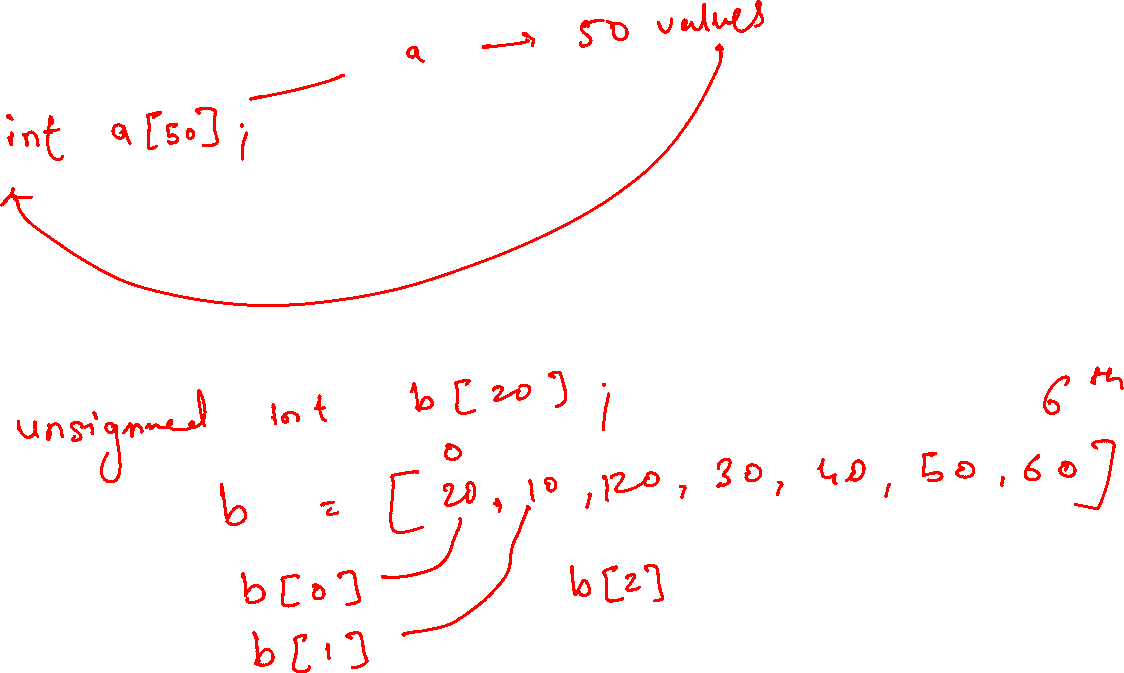 a → 50 values
int a[50];
unsigned int b[20];
6th
0
b = [20, 10, 120, 30, 40, 50, 60]
b[0] b[2]
b[1]